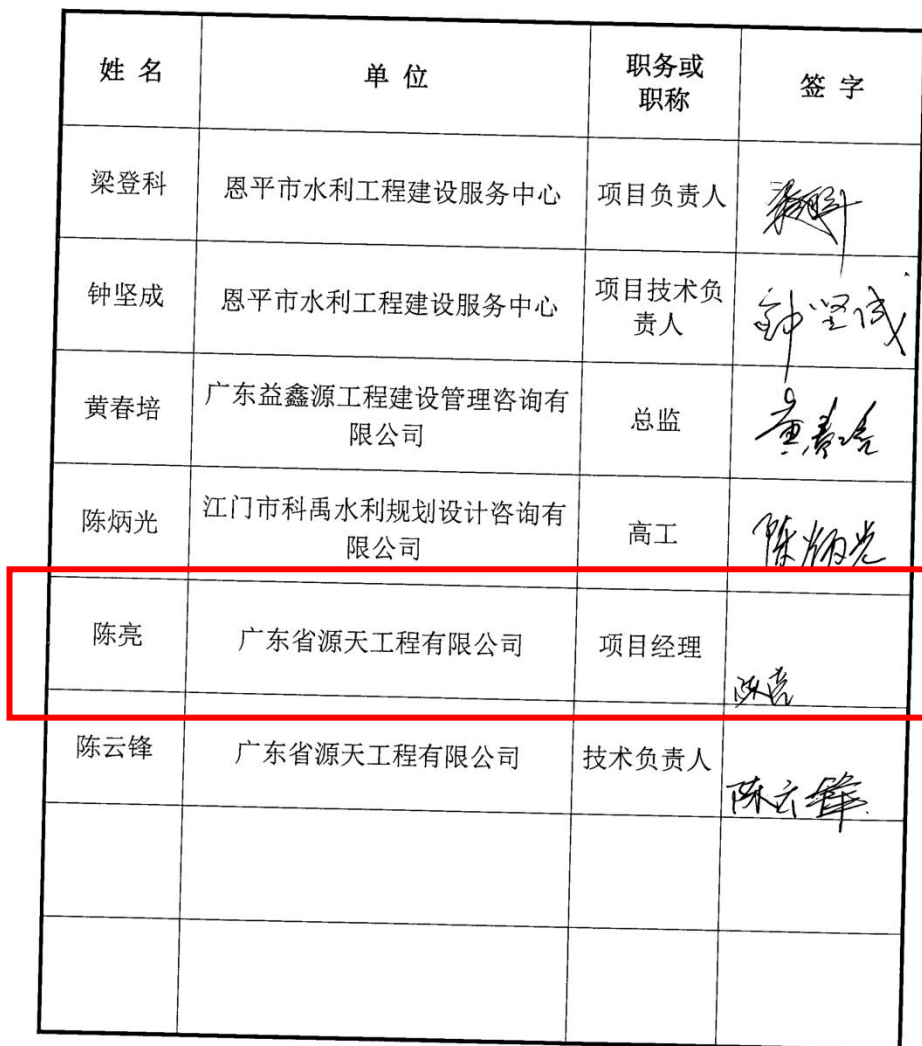 姓 名 单 位 职务或职称 签 字
梁登科 恩平市水利工程建设服务中心 项目负责人
钟坚成 恩平市水利工程建设服务中心 项目技术负责人 钟坚成
黄春培 广东益鑫源工程建设管理咨询有限公司 总监 黄春培
陈炳光 江门市科禹水利规划设计咨询有限公司 高工 陈炳光
陈亮 广东省源天工程有限公司 项目经理 陈亮
陈云锋 广东省源天工程有限公司 技术负责人 陈云锋